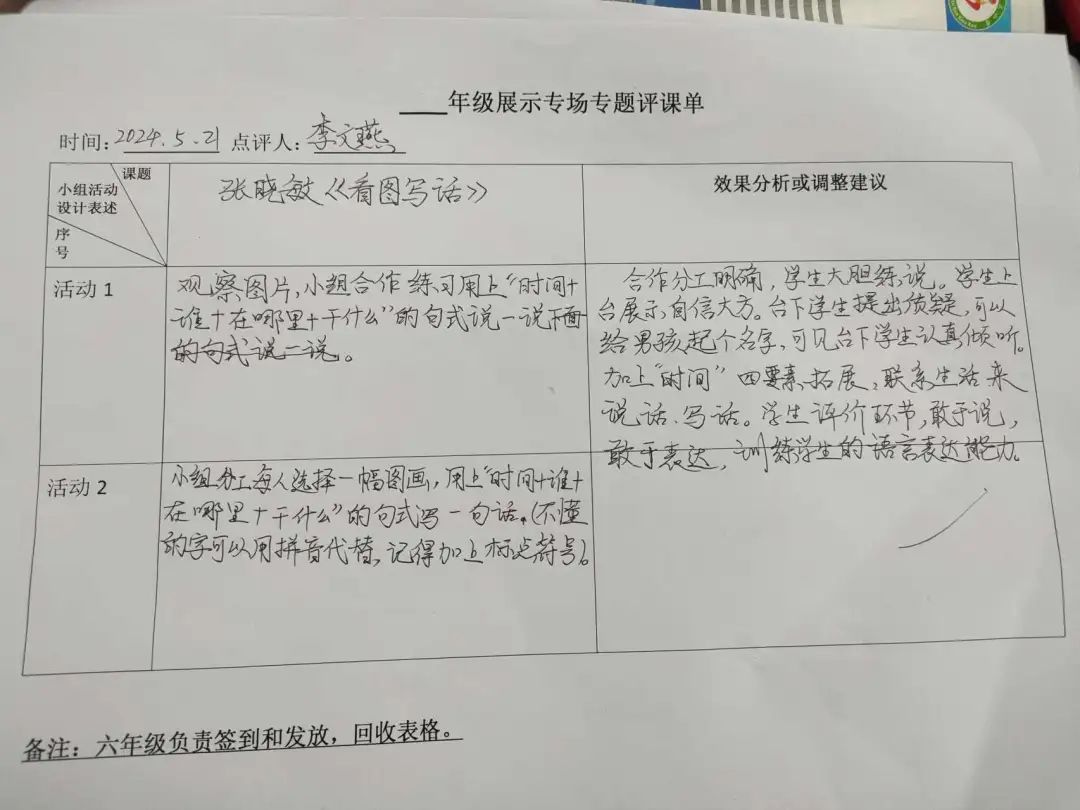 ____年级展示专场专题评课单
时间：2024.5.21 点评人：李文燕
课题
小组活动
设计表述
序
号
张晓敏《看图写话》
效果分析或调整建议
活动1
观察图片，小组合作练习用上“时间+
谁+在哪里+干什么”的句式说一说下面
的句式说一说。
合作分工明确，学生大胆练说。学生上
台展示，自信大方。台下学生提出质疑，可以
给男孩起个名字，可见台下学生认真倾听。
加上“时间”四要素拓展，联系生活来
说话、写话。学生评价环节，敢于说，
敢于表达，训练学生的语言表达能力。
活动2
小组分工每人选择一幅图画，用上“时间+谁+
在哪里+干什么”的句式写一句话。（不懂
的字可以用拼音代替，记得加上标点符号。
备注：六年级负责签到和发放，回收表格。